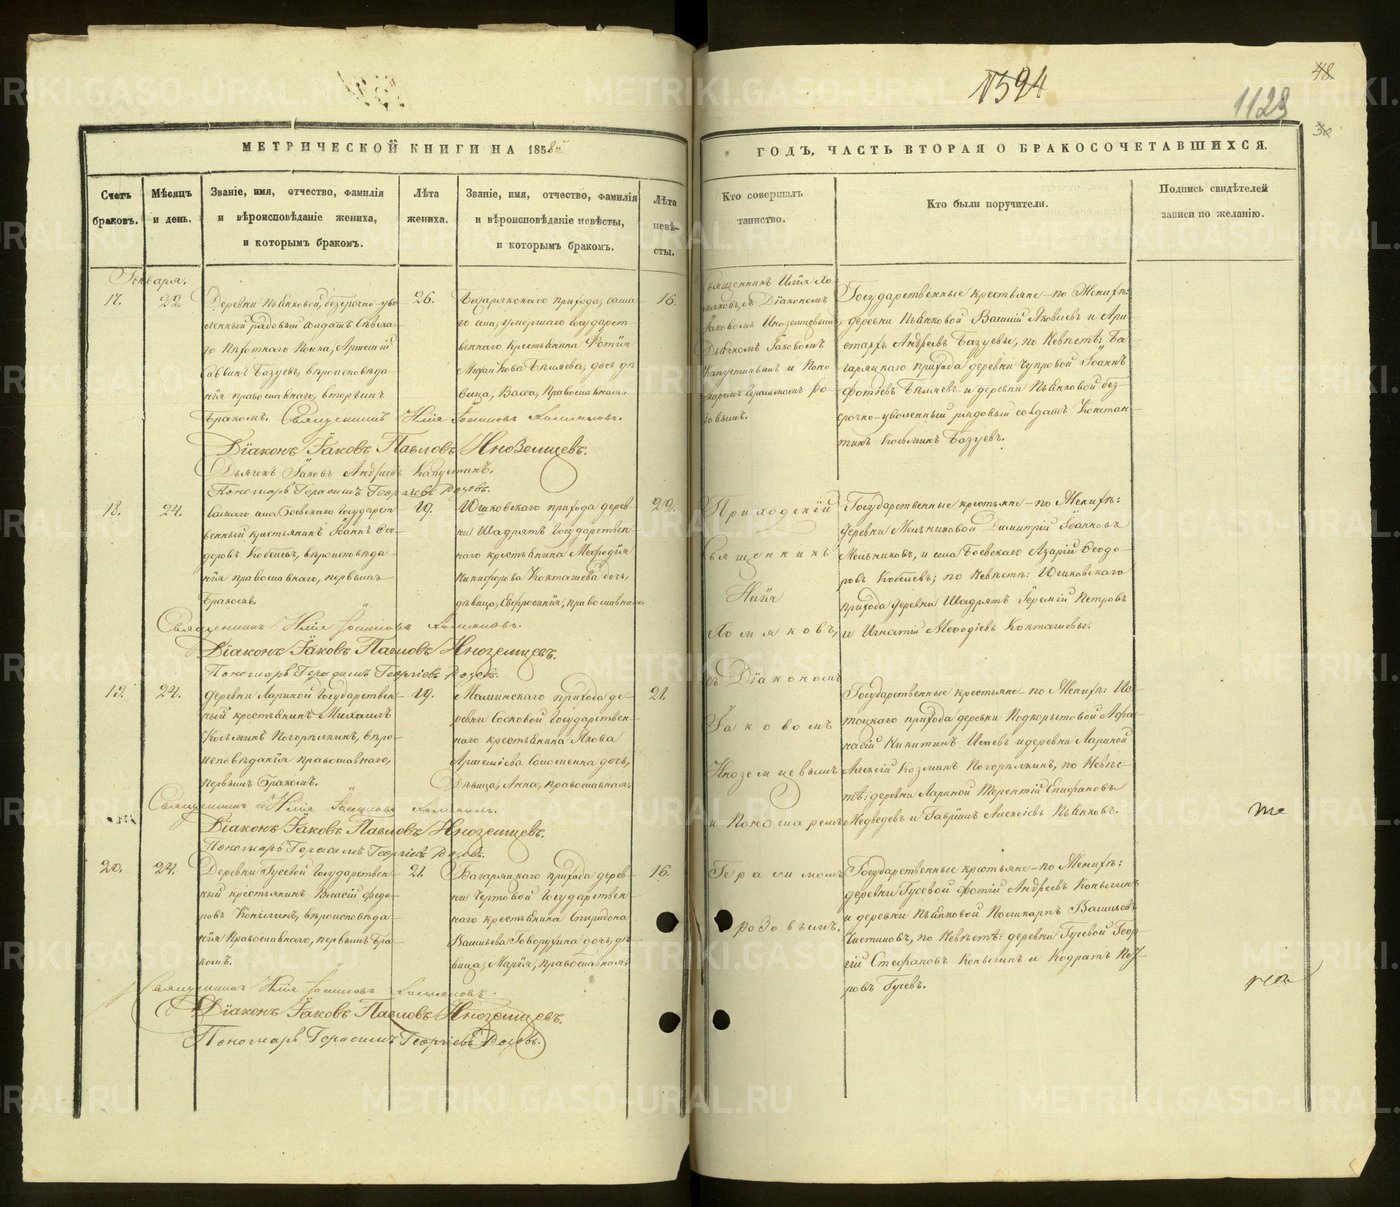 1394
48
1123
30
МЕТРИЧЕСКОЙ КНИГИ НА 1858й
ГОДЪ, ЧАСТЬ ВТОРАЯ О БРАКОСОЧЕТАВШИХСЯ.
Счетъ браковъ.
Мѣсяцъ и день.
Званіе, имя, отчество, фамилія
и вѣроисповѣданіе жениха,
и которымъ бракомъ.
Лѣта жениха.
Званіе, имя, отчество, фамилія
и вѣроисповѣданіе невѣсты,
и которымъ бракомъ.
Лѣта невѣ-
сты.
Кто совершалъ
таинство.
Кто были поручители.
Подпись свидѣтелей
записи по желанію.
Генваря.
17.
22.
Деревни Пьянковой, безсрочно-уво-
ленный рядовый солдатъ
го Пѣхотнаго Полка,
Базуевъ, вѣроисповѣда-
нія православнаго, вторымъ
бракомъ.
26.
прихода,
го села, умершаго Государст-
веннаго крестьянина Фотія
Бѣляева, дочь дѣ-
вица, Васса, Православная.
16.
Священникъ Илія Хо-
мяковъ, съ Діакономъ
Іаковомъ Иноземцевымъ,
Дьячкомъ Іаковомъ
Капустинымъ и Поно-
маремъ Герасимомъ Ро-
зовымъ.
Государственные крестьяне – по Женихѣ:
деревни Пьянковой Василій Яковлевъ и Ари-
стархъ Андреевъ Базуевы, по Невѣстѣ: Ба-
гаряцкаго прихода деревни Чупровой Іоаннъ
Фотіевъ Бѣляевъ и деревни Пьянковой без-
срочно-уволенный рядовый солдатъ Констан-
тинъ Базуевъ.
Священникъ Илія Хомяковъ.
Діаконъ Іаковъ Павловъ Иноземцевъ.
Дьячекъ Іаковъ Андреевъ Капустинъ.
Пономарь Герасимъ Георгіевъ Розовъ.
18.
24.
села Боевскаго Государст-
венный крестьянинъ Іоаннъ Ѳео-
доровъ Кобелевъ, вѣроисповѣда-
нія православнаго, первымъ
бракомъ.
19.
прихода дерев-
ни Шадрятъ Государствен-
наго крестьянина Меѳодія
Никифорова дочь,
дѣвица, Евфросинія, православная.
22.
Приходскій
Священникъ
Илія
Хомяковъ,
съ Діакономъ
Іаковомъ
Иноземцевымъ
и Пономаремъ
Герасимомъ
Розовымъ.
Государственные крестьяне – по Женихѣ:
деревни Мельниковой Димитрій Іоанновъ
Мельниковъ, и села Боевскаго Азарій Ѳеодо-
ровъ Кобелевъ; по Невѣстѣ:
прихода деревни Шадрятъ Іеремій Петровъ
и Игнатій Меѳодіевъ
Священникъ Илія Хомяковъ.
Діаконъ Іаковъ Павловъ Иноземцевъ.
Пономарь Герасимъ Георгіевъ Розовъ.
19.
24.
Деревни Лариной Государствен-
ный крестьянинъ Михаилъ
Козьминъ Погорѣлкинъ, вѣро-
исповѣданія православнаго,
первымъ бракомъ.
19.
Маминскаго прихода де-
ревни Сосновой Государствен-
наго крестьянина Якова
дочь,
Дѣвица, Анна, православная.
21.
Государственные крестьяне – по Женихѣ:
прихода деревни Подкорытовой Аѳа-
насій Никитинъ и деревни Лариной
Алексій Козминъ Погорѣлкинъ, по Невѣс-
тѣ: деревни Лариной Терентій Епифановъ
Медведевъ и Гавріилъ Алексіевъ Пьянковъ.
Священникъ Илія Хомяковъ.
Діаконъ Іаковъ Павловъ Иноземцевъ.
Пономарь Герасимъ Георгіевъ Розовъ.
20.
24.
Деревни Гусевой Государствен-
ный крестьянинъ Власій Ѳеодо-
ровъ Копыгинъ, вѣроисповѣда-
нія Православнаго, первымъ бра-
комъ.
21.
Багаряцкаго прихода дерев-
ни Чертовой Государствен-
наго крестьянина Спиридона
Васильева Говорухина дочь, дѣ-
вица, Марія, православная.
16.
Государственные крестьяне – по Женихѣ:
деревни Гусевой Фотій Андреевъ Копыгинъ
и деревни Пьянковой Поликарпъ Васильевъ
по Невѣстѣ: деревни Гусевой Геор-
гій Стефановъ Копыгинъ и Кодратъ
ровъ Гусевъ.
Священникъ Илія Хомяковъ.
Діаконъ Іаковъ Павловъ Иноземцевъ.
Пономарь Герасимъ Георгіевъ Розовъ.
METRIKI.GASO-URAL.RU